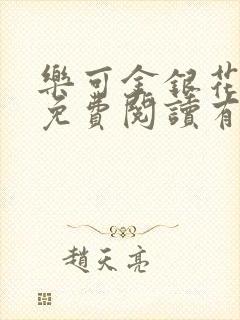 樂可金銀花
免費閱讀有
趙天亮